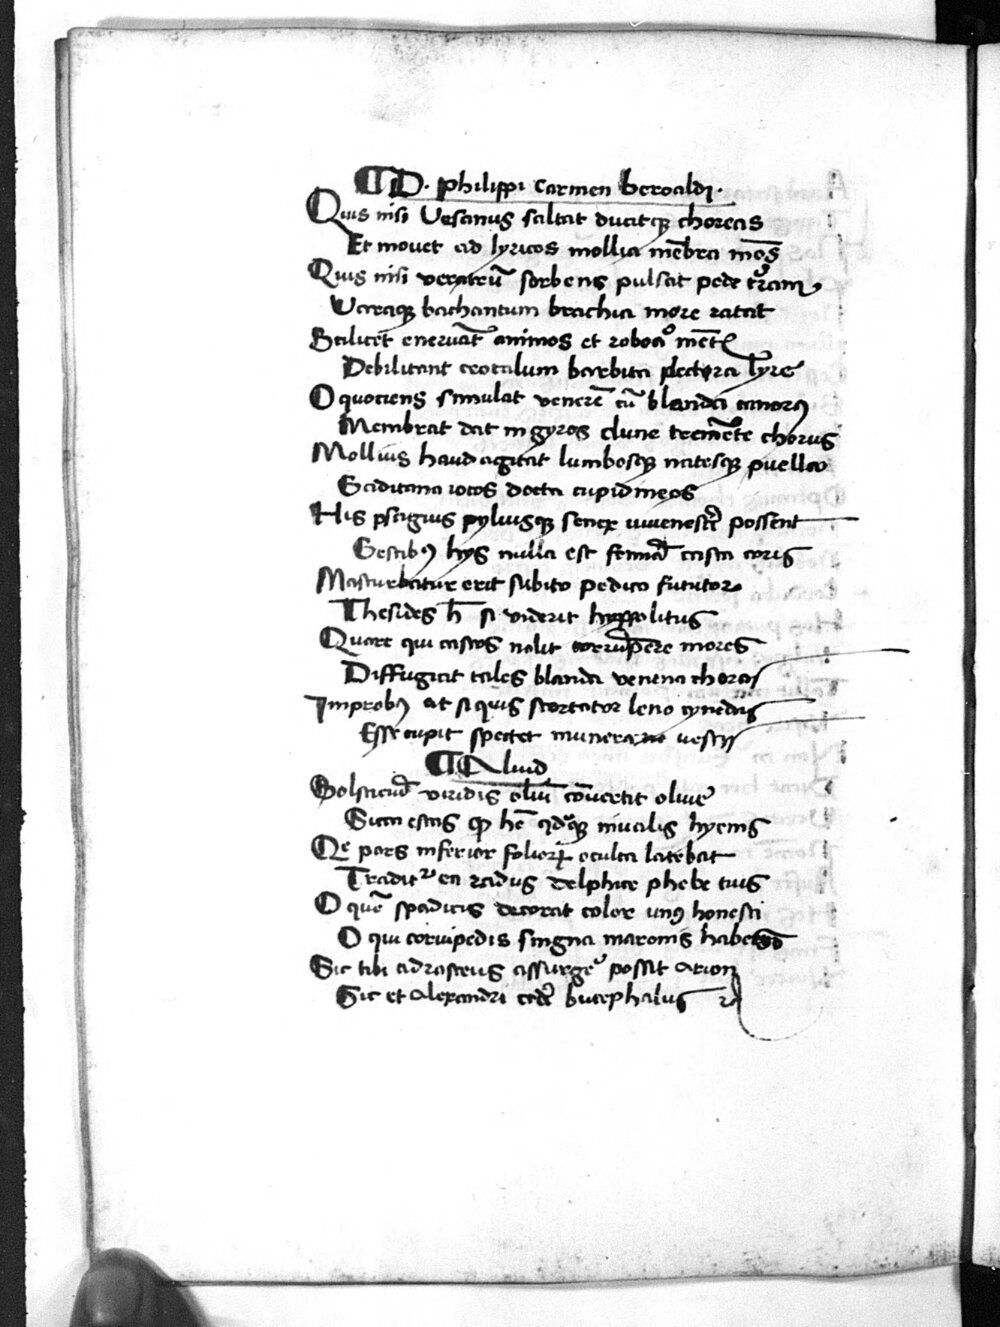 ¶ D. Philippi Carmen beroaldi.
Quis nisi Vesanus saltat ducitqꝫ choreas
Et mouet ad lyricos mollia mēbra mo᷒s
Quis nisi veratrū sorbens pulsat pede trām
Vtraqꝫ bachantum brachia more
Scilicet eneruāt animos et roboa᷒ mēt
Debilitant crotalum barbita plectra lyre
O quotiens simulat venerē cū blanda canorꝰ
Membrat dat in gyros clune tremēte chorus
Mollius haud agitat lumbosqꝫ natesqꝫ puella
Gaditana iocos docta cupidineos
His pstigiis pyliusqꝫ senex possent
Gestibꝰ hys nulla est femīa casta
Masturbatur erit subito pedico fututor
Thesides h̄ si viderit hyppolitus
Quare qui castos nolit corrūpere mores
Diffugiat tales blanda venena choras
Improbꝰ at si quis scortator leno cynedus
Esse cupit spectet munera
¶ Aliud
Solsticiū viridis conuertit oliue
hyems
Qe pars inferior folioꝝ oculta latebat
Tradit᷒ en radiis delphice phebe tuis
O quē spadicis decorat color unꝰ honesti
O qui cornipedis singna maronis habes
Sic tibi adrasteus assurge᷒ possit Arion
Sic et Alexandri cedēt bucephalus